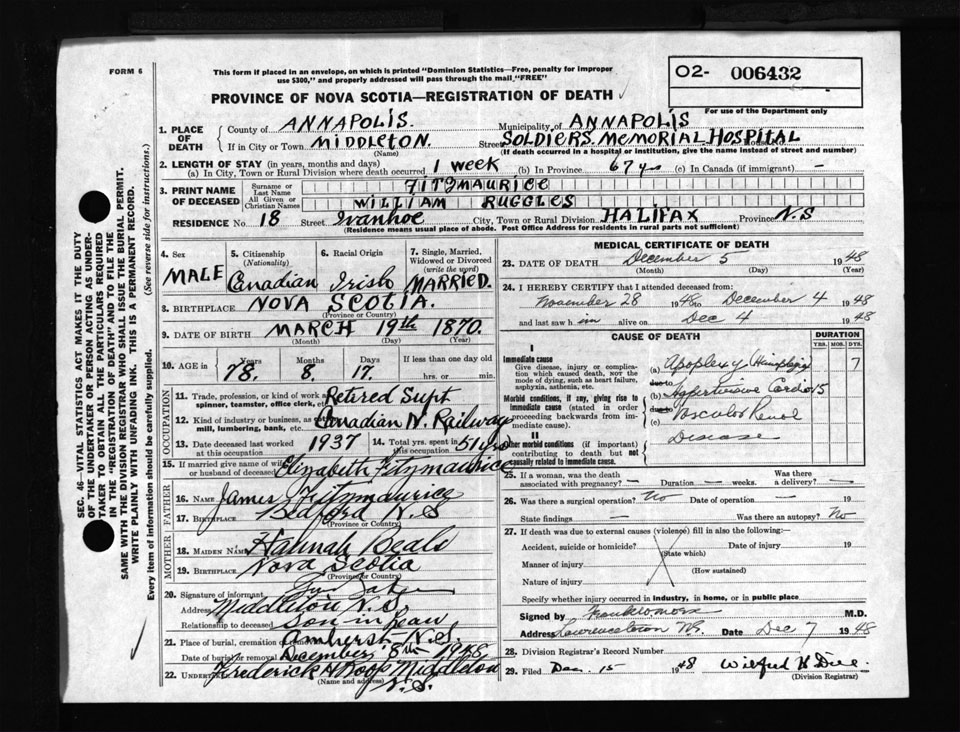 FORM 6
This form if placed in an envelope, on which is printed "Dominion Statistics—Free, penalty for improper
use $300," and properly addressed will pass through the mail "FREE"
02- 006432
For use of the Department only
PROVINCE OF NOVA SCOTIA—REGISTRATION OF DEATH
SEC. 46—VITAL STATISTICS ACT MAKES IT THE DUTY
OF THE UNDERTAKER OR PERSON ACTING AS UNDER-
TAKER TO OBTAIN ALL THE PARTICULARS REQUIRED
IN THE "REGISTRATION OF DEATH" AND TO FILE THE
SAME WITH THE DIVISION REGISTRAR WHO SHALL ISSUE THE BURIAL PERMIT.
WRITE PLAINLY WITH UNFADING INK. THIS IS A PERMANENT RECORD.
Every item of information should be carefully supplied. (See reverse side for instructions.)
1. PLACE OF DEATH
County of ANNAPOLIS. Municipality of ANNAPOLIS
If in City or Town MIDDLETON. (Name) Street SOLDIERS. MEMORIAL HOSPITAL House No.
(If death occurred in a hospital or institution, give the name instead of street and number)
2. LENGTH OF STAY (in years, months and days)
(a) In City, Town or Rural Division where death occurred 1 week (b) In Province 67 yrs (c) In Canada (if immigrant) —
3. PRINT NAME OF DECEASED
Surname or Last Name FITZMAURICE
All Given or Christian Names WILLIAM RUGGLES
RESIDENCE No. 18 Street Ivanhoe City, Town or Rural Division HALIFAX Province N.S
(Residence means usual place of abode. Post Office Address for residents in rural parts not sufficient)
4. Sex MALE
5. Citizenship (Nationality) Canadian
6. Racial Origin Irish
7. Single, Married, Widowed or Divorced (write the word) MARRIED.
8. BIRTHPLACE NOVA SCOTIA.
(Province or Country)
9. DATE OF BIRTH MARCH 19th 1870.
(Month) (Day) (Year)
10. AGE in Years 78. Months 8. Days 17. If less than one day old
hrs. or min.
OCCUPATION
11. Trade, profession, or kind of work as spinner, teamster, office clerk, etc. Retired Supt
12. Kind of industry or business, as mill, lumbering, bank, etc. Canadian N. Railway
13. Date deceased last worked at this occupation 1937 14. Total yrs. spent in this occupation 51 yrs
15. If married give name of wife or husband of deceased Elizabeth Fitzmaurice
FATHER
16. NAME James Fitzmaurice
17. BIRTHPLACE Bedford N.S
(Province or Country)
MOTHER
18. MAIDEN NAME Hannah Beals
19. BIRTHPLACE Nova Scotia
(Province or Country)
20. Signature of informant
Address Middleton N.S.
Relationship to deceased Son in Law
21. Place of burial, cremation or removal Amherst N.S.
Date of burial or removal December 8th 1948
22. UNDERTAKER Frederick H Roop Middleton
(Name and address) N.S.
MEDICAL CERTIFICATE OF DEATH
23. DATE OF DEATH December 5 1948
(Month) (Day) (Year)
24. I HEREBY CERTIFY that I attended deceased from:
November 28 1948 to December 4 1948
and last saw him alive on Dec 4 1948
CAUSE OF DEATH DURATION
YRS. MOS. DYS.
I
Immediate cause
Give disease, injury or complication which caused death, not the mode of dying, such as heart failure, asphyxia, asthenia, etc.
(a) Apoplexy Hemiplegia 7
due to
Morbid conditions, if any, giving rise to immediate cause (stated in order proceeding backwards from immediate cause).
(b) Hypertensive Cardio 15
due to
(c) Vascular Renal
II
Other morbid conditions (if important) contributing to death but not causally related to immediate cause.
Disease
25. If a woman, was the death associated with pregnancy? — Duration — weeks. Was there a delivery? —
26. Was there a surgical operation? No Date of operation — 19
State findings — Was there an autopsy? No
27. If death was due to external causes (violence) fill in also the following:—
Accident, suicide or homicide? (State which) Date of injury 19
Manner of injury
(How sustained)
Nature of injury
Specify whether injury occurred in industry, in home, or in public place
Signed by M.D.
Address Lawrencetown NS. Date Dec 7 1948
28. Division Registrar's Record Number
29. Filed Dec. 15 1948 Wilfred H
(Division Registrar)